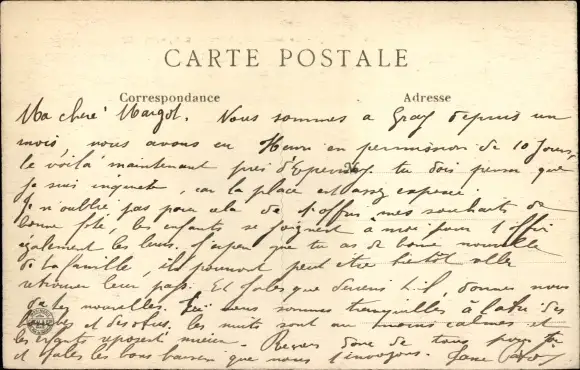 CARTE POSTALE
Correspondance
Adresse
Ma cheré Margot. Nous sommes a Gray depuis un
mois, nous avons eu Henri en permission de 10 jours,
le voilà maintenant près d'Epernay. tu dois penser que
je suis inquiete, car la place est assez exposée.
Je n'oublie pas pour cela de t'offrir mes souhaits de
bonne fête, les enfants se joignent à moi pour t'offrir
également les leurs. que tu as de bonne nouvelle
de ta famille, ils pourront peut etre bientôt
retrouver leur pays. Et que devient donnes nous
de tes nouvelles. Ici nous sommes tranquilles à l'abri des
bombes et des obus, les nuits sont au moins calmes et
les enfants reposent mieux. Reçois donc de tous
et les bons baisers que nous t'envoyons. Jane